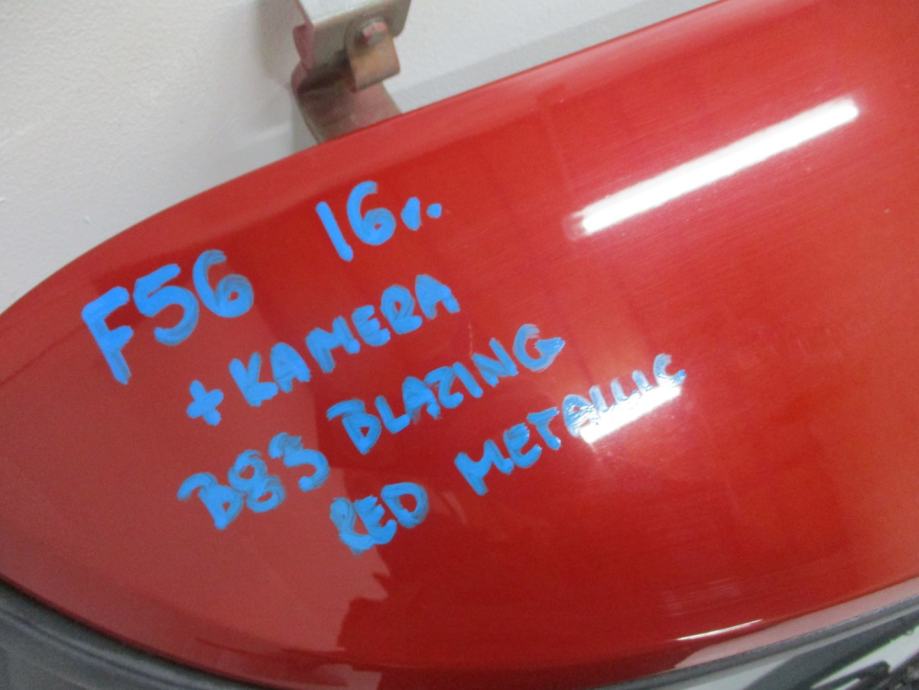 F56 16r.
+KAMERA
B83 BLAZING
RED METALLIC